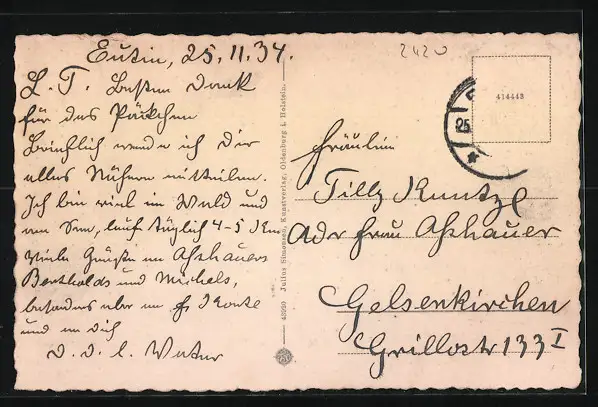 Eutin, 25.11.34.
L. T. Besten Dank
für das Päckchen
Brieflich werde ich Dir
alles Nähere mitteilen.
Ich bin viel im Wald und
am See, lauf täglich 4-5 Km
Viele Grüße an Ashauers
Bertholds und Michels,
besonders aber an Fr Kante
und an Dich
D. d. l. Vater
43920 Julius Simonsen, Kunstverlag, Oldenburg i. Holstein.
2420
414443
25
Fräulein
Tilly Kuntze
Adr frau Ashauer
Gelsenkirchen
Grillostr 133 I